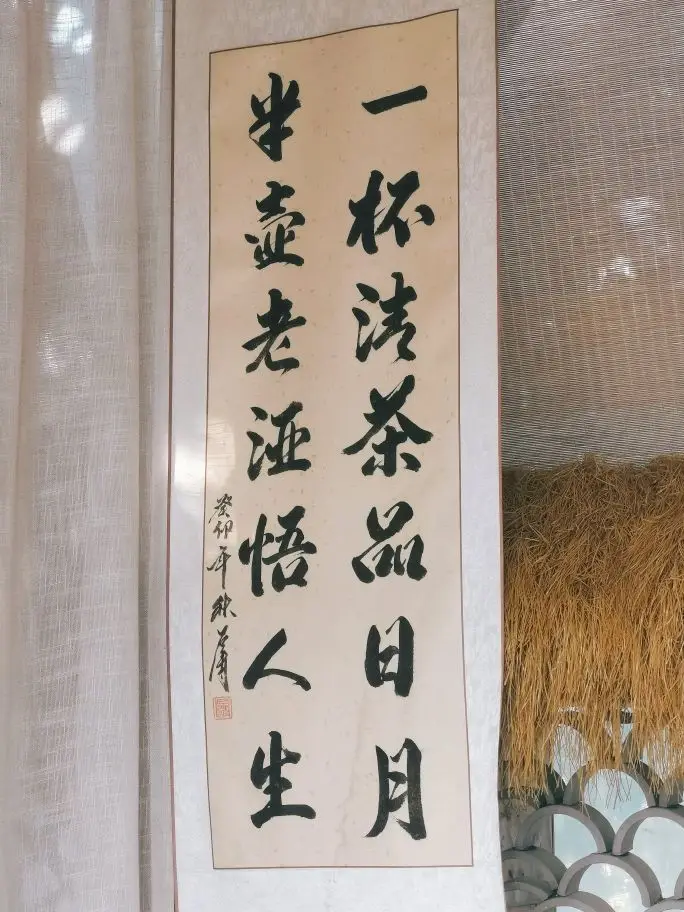 一杯清茶品日月
半壶老酒悟人生
癸卯年秋